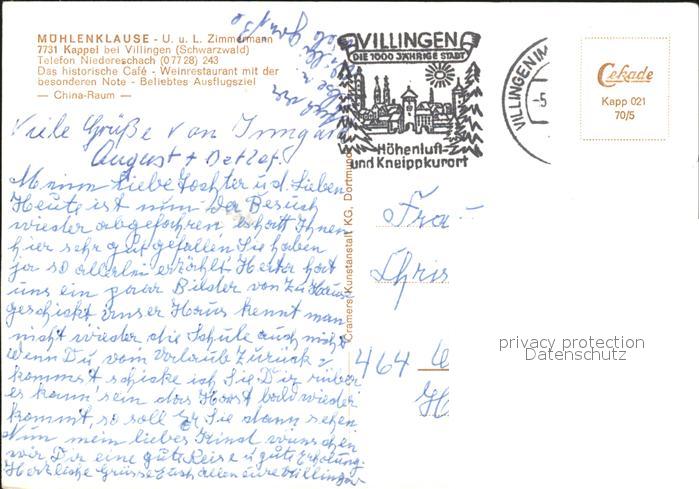 MÜHLENKLAUSE - U. u. L. Zimmermann
7731 Kappel bei Villingen (Schwarzwald)
Telefon Niedereschach (0 77 28) 243
Das historische Café - Weinrestaurant mit der
besonderen Note - Beliebtes Ausflugsziel
— China-Raum —
VILLINGEN
DIE 1000 JÄHRIGE STADT
Höhenluft-
und Kneippkurort
VILLINGEN IM
-5
Cekade
Kapp 021
70/5
Viele Grüße von Irmgard
August + Detlef
Meine liebe Tochter u d. Lieben
Heute ist nun der Besuch
wieder abgefahren es hatt Ihnen
hier sehr gut gefallen Sie haben
ja so allerlei erzählt Herta hat
uns ein paar Bilder von zu Haus
geschickt unser Haus kennt man
nicht wieder die Schule auch nicht
Wenn Du vom Urlaub zurück
kommst schicke ich Sie Dir rüber
es kann sein das Horst bald wieder
kommt, so soll Er Sie dann sehen
Nun mein liebes Kind wünschen
wir Dir eine gute Reise u gute Erholung.
Herzliche Grüsse Euch allen eure Villinger
Cramers Kunstanstalt KG, Dortmund
Frau
Chris
464 W
H
privacy protection
Datenschutz